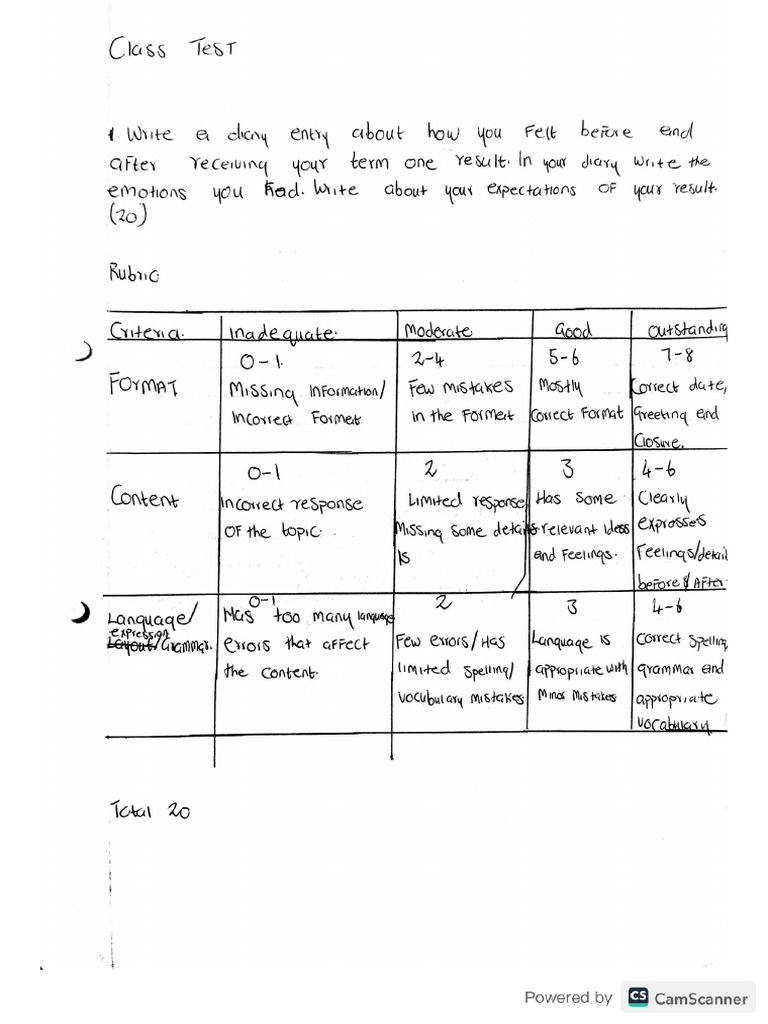 Class Test
1. Write a diary entry about how you felt before and
after receiving your term one result. In your diary write the
emotions you had. Write about your expectations of your result.
(20)
Rubric
Criteria. Inadequate. Moderate Good Outstanding
Format
0-1.
Missing information/
incorrect format
2-4
Few mistakes
in the format
5-6
Mostly
Correct format
7-8
Correct date,
Greeting and
Closure.
Content
0-1
Incorrect response
of the topic.
2
Limited response
Missing some details
is
3
Has some
relevant ideas
and feelings.
4-6
Clearly
expresses
Feelings/detail
before & After.
Language/
expression
Layout/Grammar.
0-1
Has too many language
errors that affect
the content.
2
Few errors/Has
limited spelling/
vocubulary mistakes
3
Language is
appropriate with
Minor mistakes
4-6
Correct spelling,
grammar and
appropriate
vocabulary
Total 20
Powered by CS CamScanner